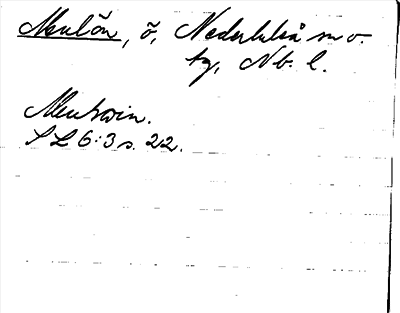 Munkön, ö, Nederluleå sn o.
tg, Nb. l.
Munkwin.
SL 6:3 s. 22.